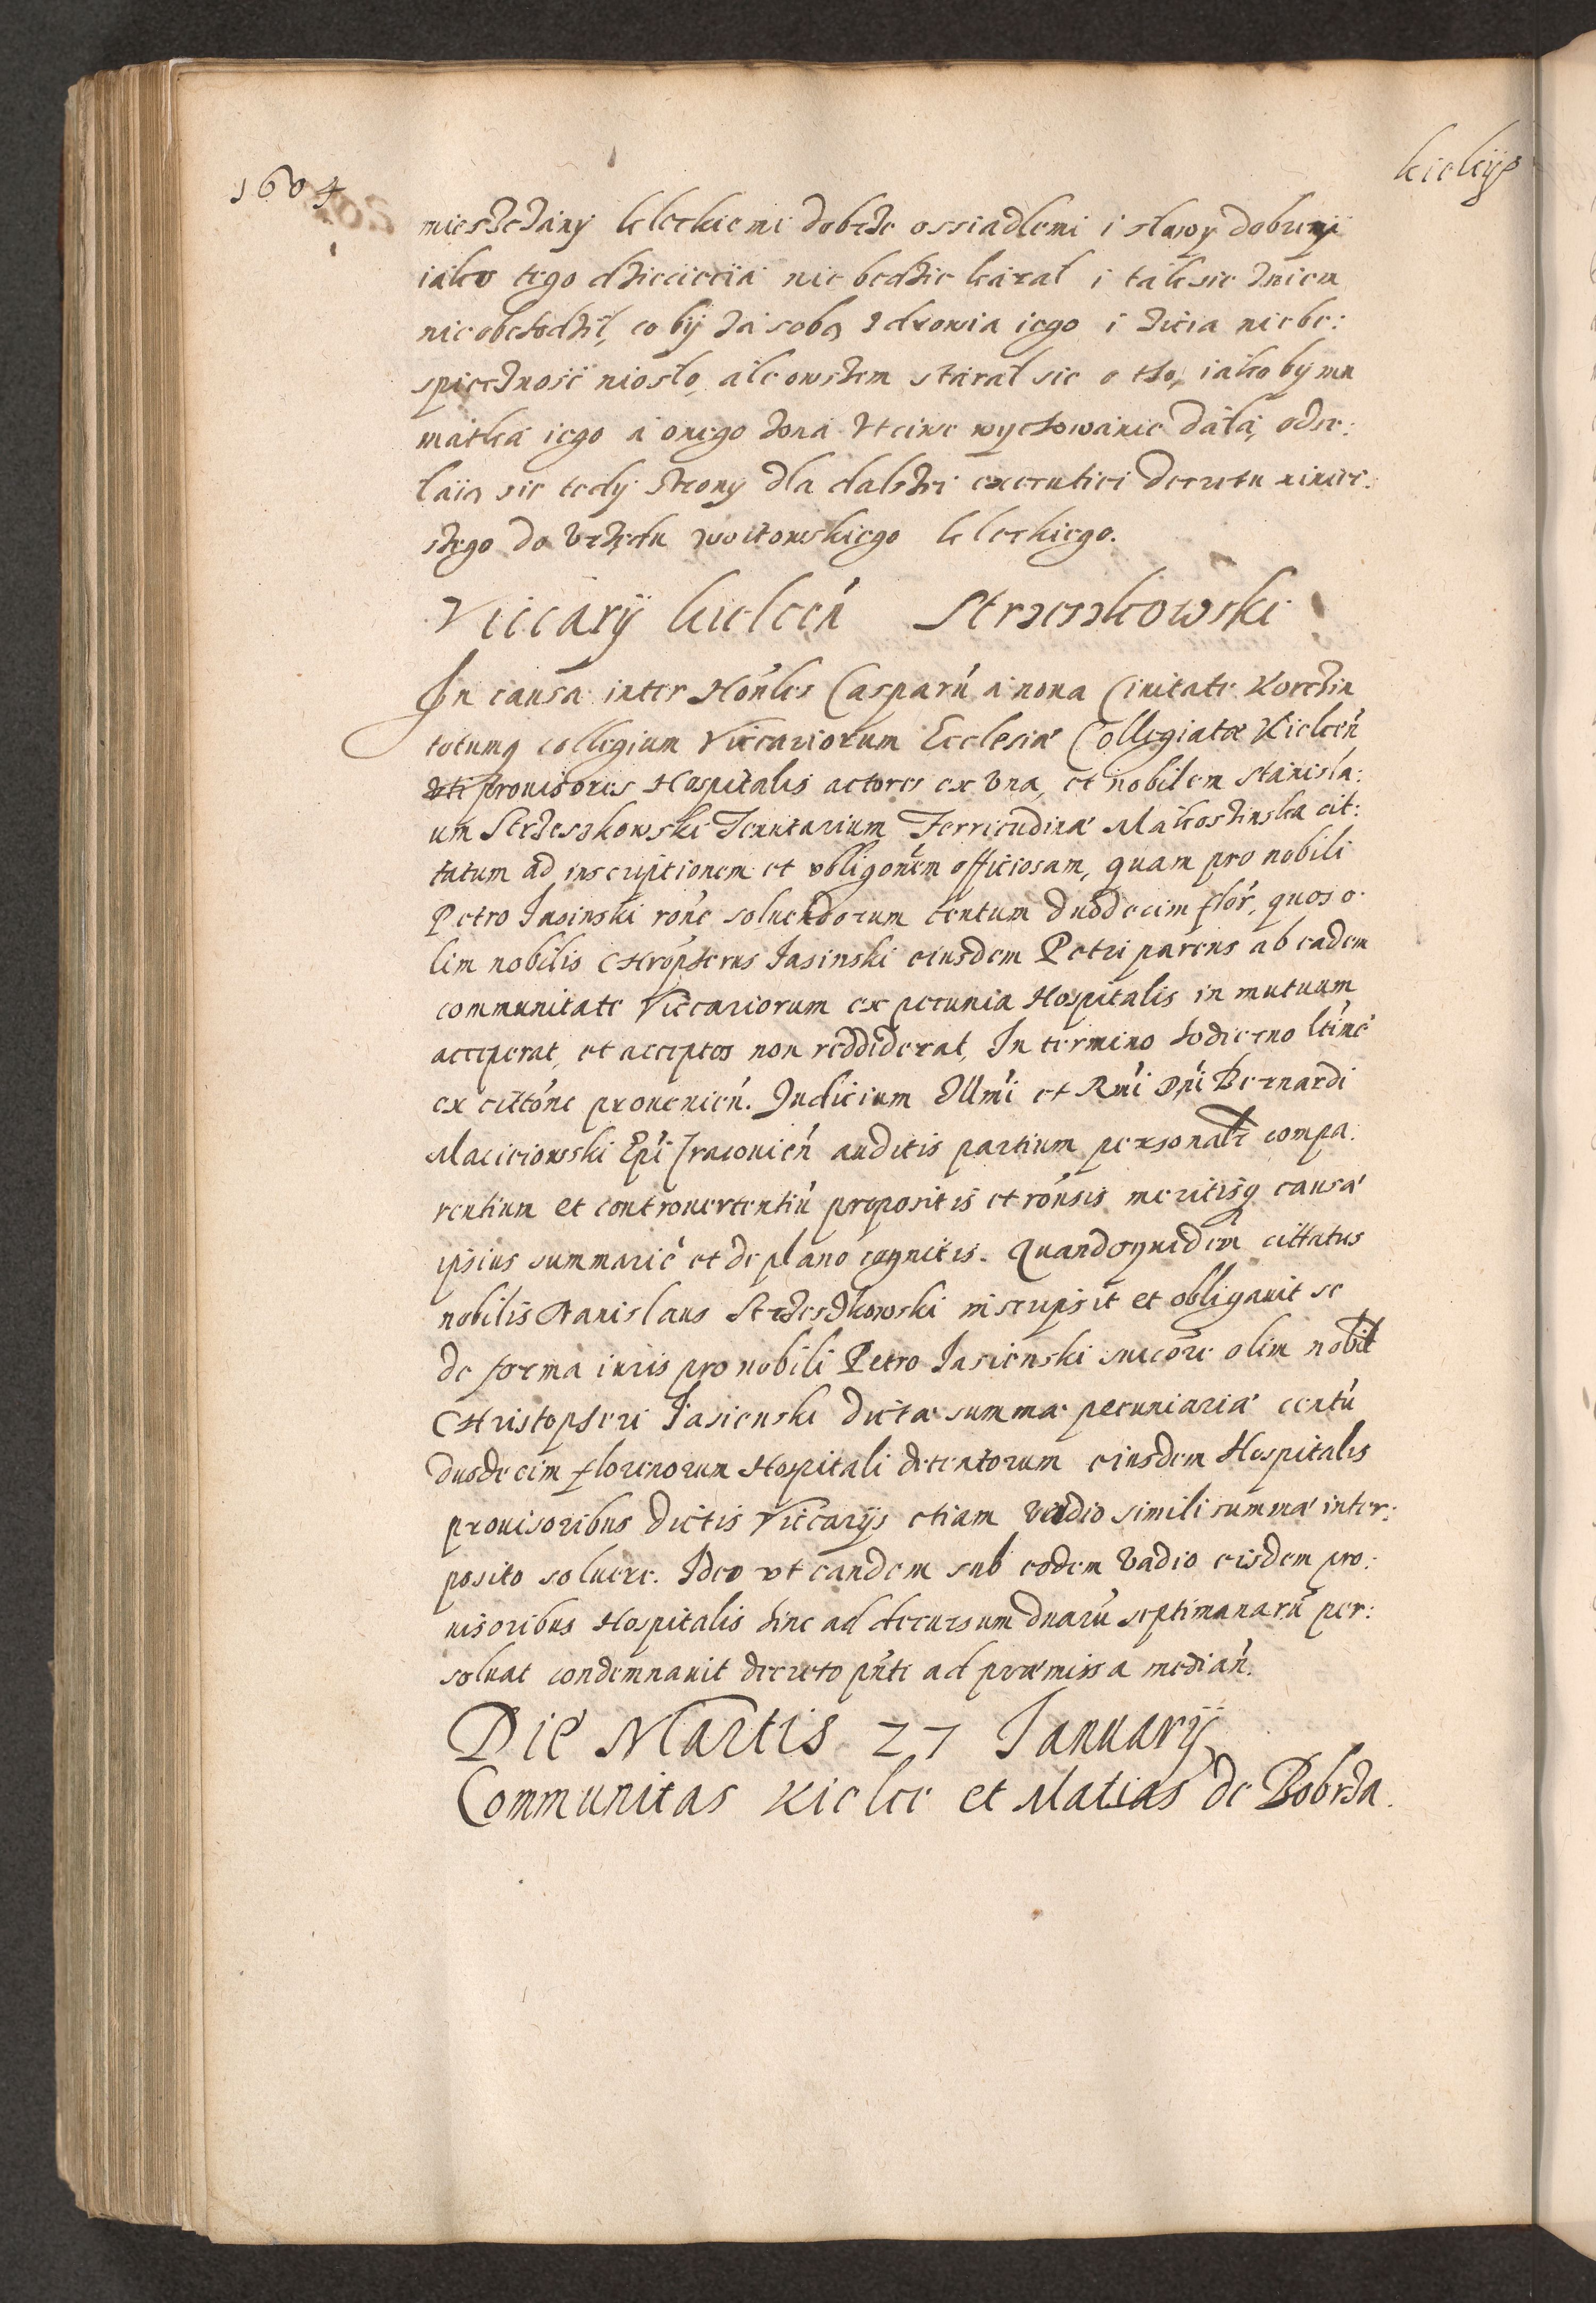 1604
kielcys
mieszczany kleckiemi dobrze ossiadlemi i slawy dobryy
iako tego dzieciecia nie bedzie karal i tak sie z niem
nie obchodzil, co by za soba zdrowia iego i zicia niebe:
spiecznosc nioslo, ale owszem staral sie o tho, iakoby mu
matka iego a onego zona vtciwe wychowanie dala, odse:
laia sie tedy strony dla dalszei executiei decretu ninie:
szego do vrzedu woitowskiego kleckiego.
Viccarÿ kielceń Strzeszkowski
In causa inter Honles Casparu a noua Ciuitate Korczin
totumq collegium Viccariorum Ecclesiæ Collegiatæ Kielceń
uti prouisores Hospitalis actores ex vna, et nobilem Stanisla:
um Strzeszkowski Tenutarium Ferricudinæ Makoszinska cit:
tatum ad inscriptionem et obligonem officiosam, quam pro nobili
Petro Jasinski rone soluendorum centum duodecim flor, quos o
lim nobilis Chropherus Jasinski eiusdem Petri parens ab eadem
communitate Viccariorum ex pecunia Hospitalis in mutuum
acceperat, et acceptos non reddiderat, In termino hodierno ltime
ex cittone prouenień. Judicium Illmi et Rmi Dni Bernardi
Macieiowski Epi Cracouień auditis partium personalr compa
rentium et controuertentiu propositis et ronsis meritisq causæ
ipsius summarie et de plano cognitis. Quandoquidem cittatus
nobilis Stanislaus Strzeszkowski inscripsit et obligauit se
de forma iuris pro nobili Petro Jasienski succore olim nobil
Christopheri Jasienski dictæ summæ pecuniariæ centu
duodecim florenorum Hospitali detentorum eiusdem Hospitalis
prouisoribus dictis Viccarijs etiam vadio simili summæ inter:
posito soluere. Ideo vt eandem sub eodem vadio eisdem pro:
uisoribus Hospitalis hinc ad decursum duaru septimanaru per:
soluat condemnauit decreto pnte ad præmissa mediań.
Die Martis 27 Januarÿ
Communitas Kielce et Matias de Bobrza.